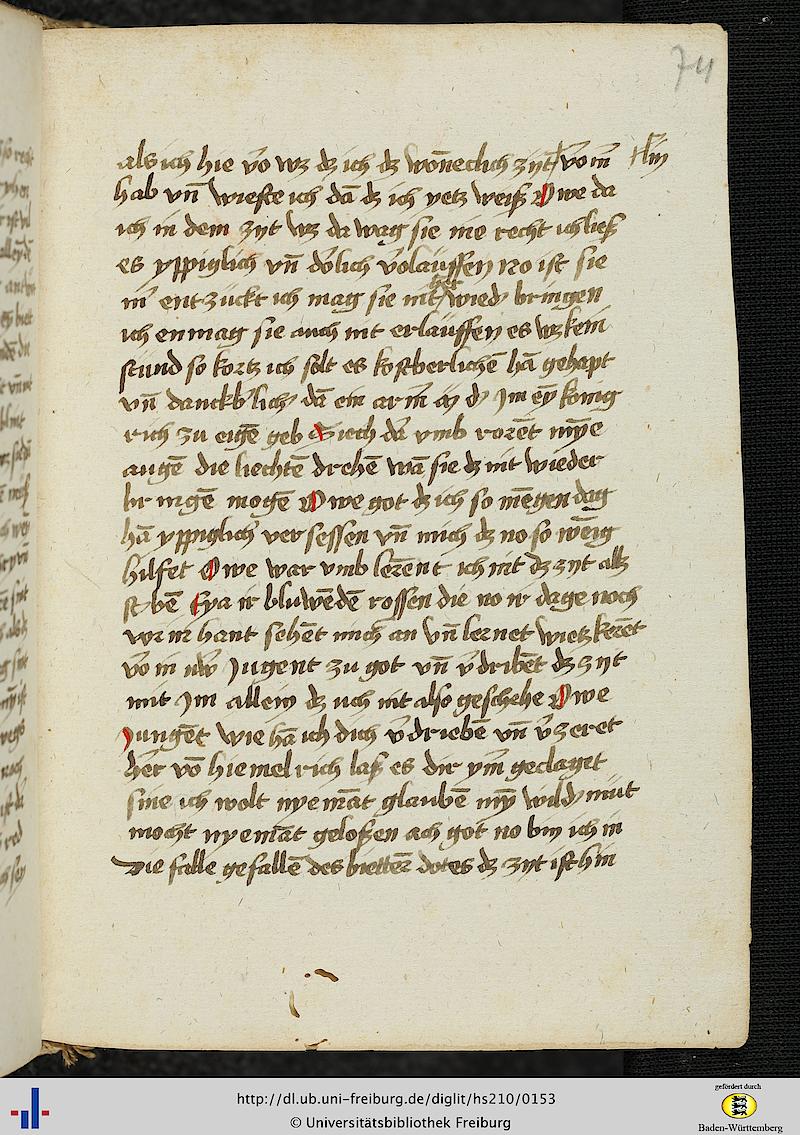 74
als ich hie vō wz dz ich dz woñeclich zijt vō m̄ hin
hab vn̄ wieste ich dā dz ich yetz weiß Owe da
ich in dem zijt wz da wag sie nie recht ich ließ
es yppiglich vn̄ dōlich v̄oläuffen no ist sie
m̄ entzückt ich mag sie nit her wied bringen
ich enmag sie auch nit erläuffen es wz kein
stund so kortz ich solt es kostberlichē hā gehapt
vn̄ danckb'lich dā ein arm̄ d Jm eȳ konig
rich zu eigē geb Siech dā vmb rorēt mȳe
augē die liechtē drehē wā sie dz nit wieder
bringē mogē Owe got dz ich so mēgen dag
hā yppiglich versessen vn̄ mich dz no so wēig
hilfet Owe war vmb lerēnt ich nit dz zijt allz
st'bē Eya ir bluwēdē rossen die no ir dage noch
vor ir hant sehēt mich an vn̄ lernet wietz kerēt
vō in uw̄ Jugent zu got vn̄ v̄dribēt dz zijt
mit Jm allein dz uch nit also geschehe Owe
Jungēt wie hā ich dich v̄driebē vn̄ v̄zeret
hēr vō hiemelrich laß es dir ym̄ geclaget
sine ich wolt nyemāt glaubē mȳ wild müt
mocht nyemāt geloßen ach got no bin ich in
Die falle gefallē des bietterē dotes dz zijt ist hin
http://dl.ub.uni-freiburg.de/diglit/hs210/0153
© Universitätsbibliothek Freiburg
gefördert durch
Baden-Württemberg